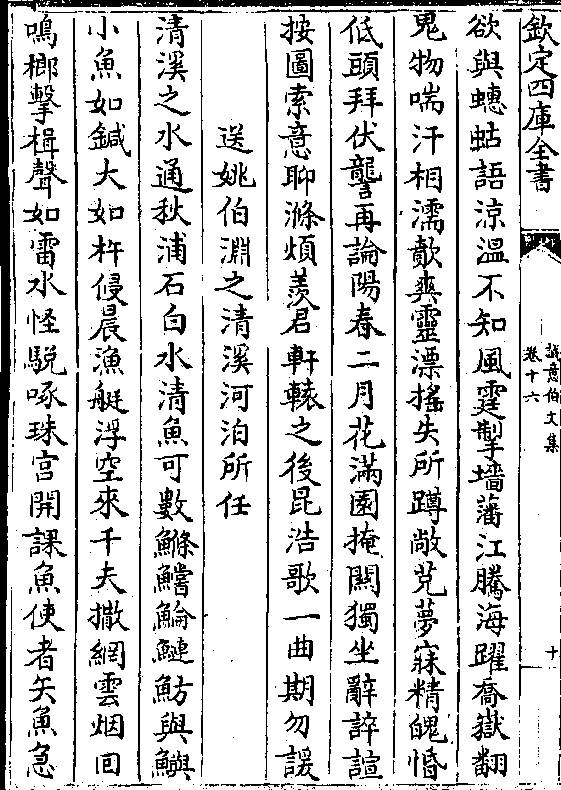 欽定四庫全書
誠意伯文集
卷十六
十
欲與蟪蛄語涼溫不知風霆掣墻藩江騰海躍喬嶽翻
鬼物喘汗相濡歕爽靈漂搖失所蹲敞芄夢寐精魄惛
低頭拜伏讋再論陽春二月花滿園掩關獨坐辭誶諠
按圖索意聊滌煩羨君軒轅之後昆浩歌一曲期勿諼
送姚伯淵之清溪河泊所任
清溪之水通秋浦石白水清魚可數鰷鱨鯩鰱魴與鱮
小魚如鍼大如杵侵晨漁艇浮空來千夫撒網雲烟回
鳴榔擊楫聲如雷水怪駾喙珠宮開課魚使者矢魚急